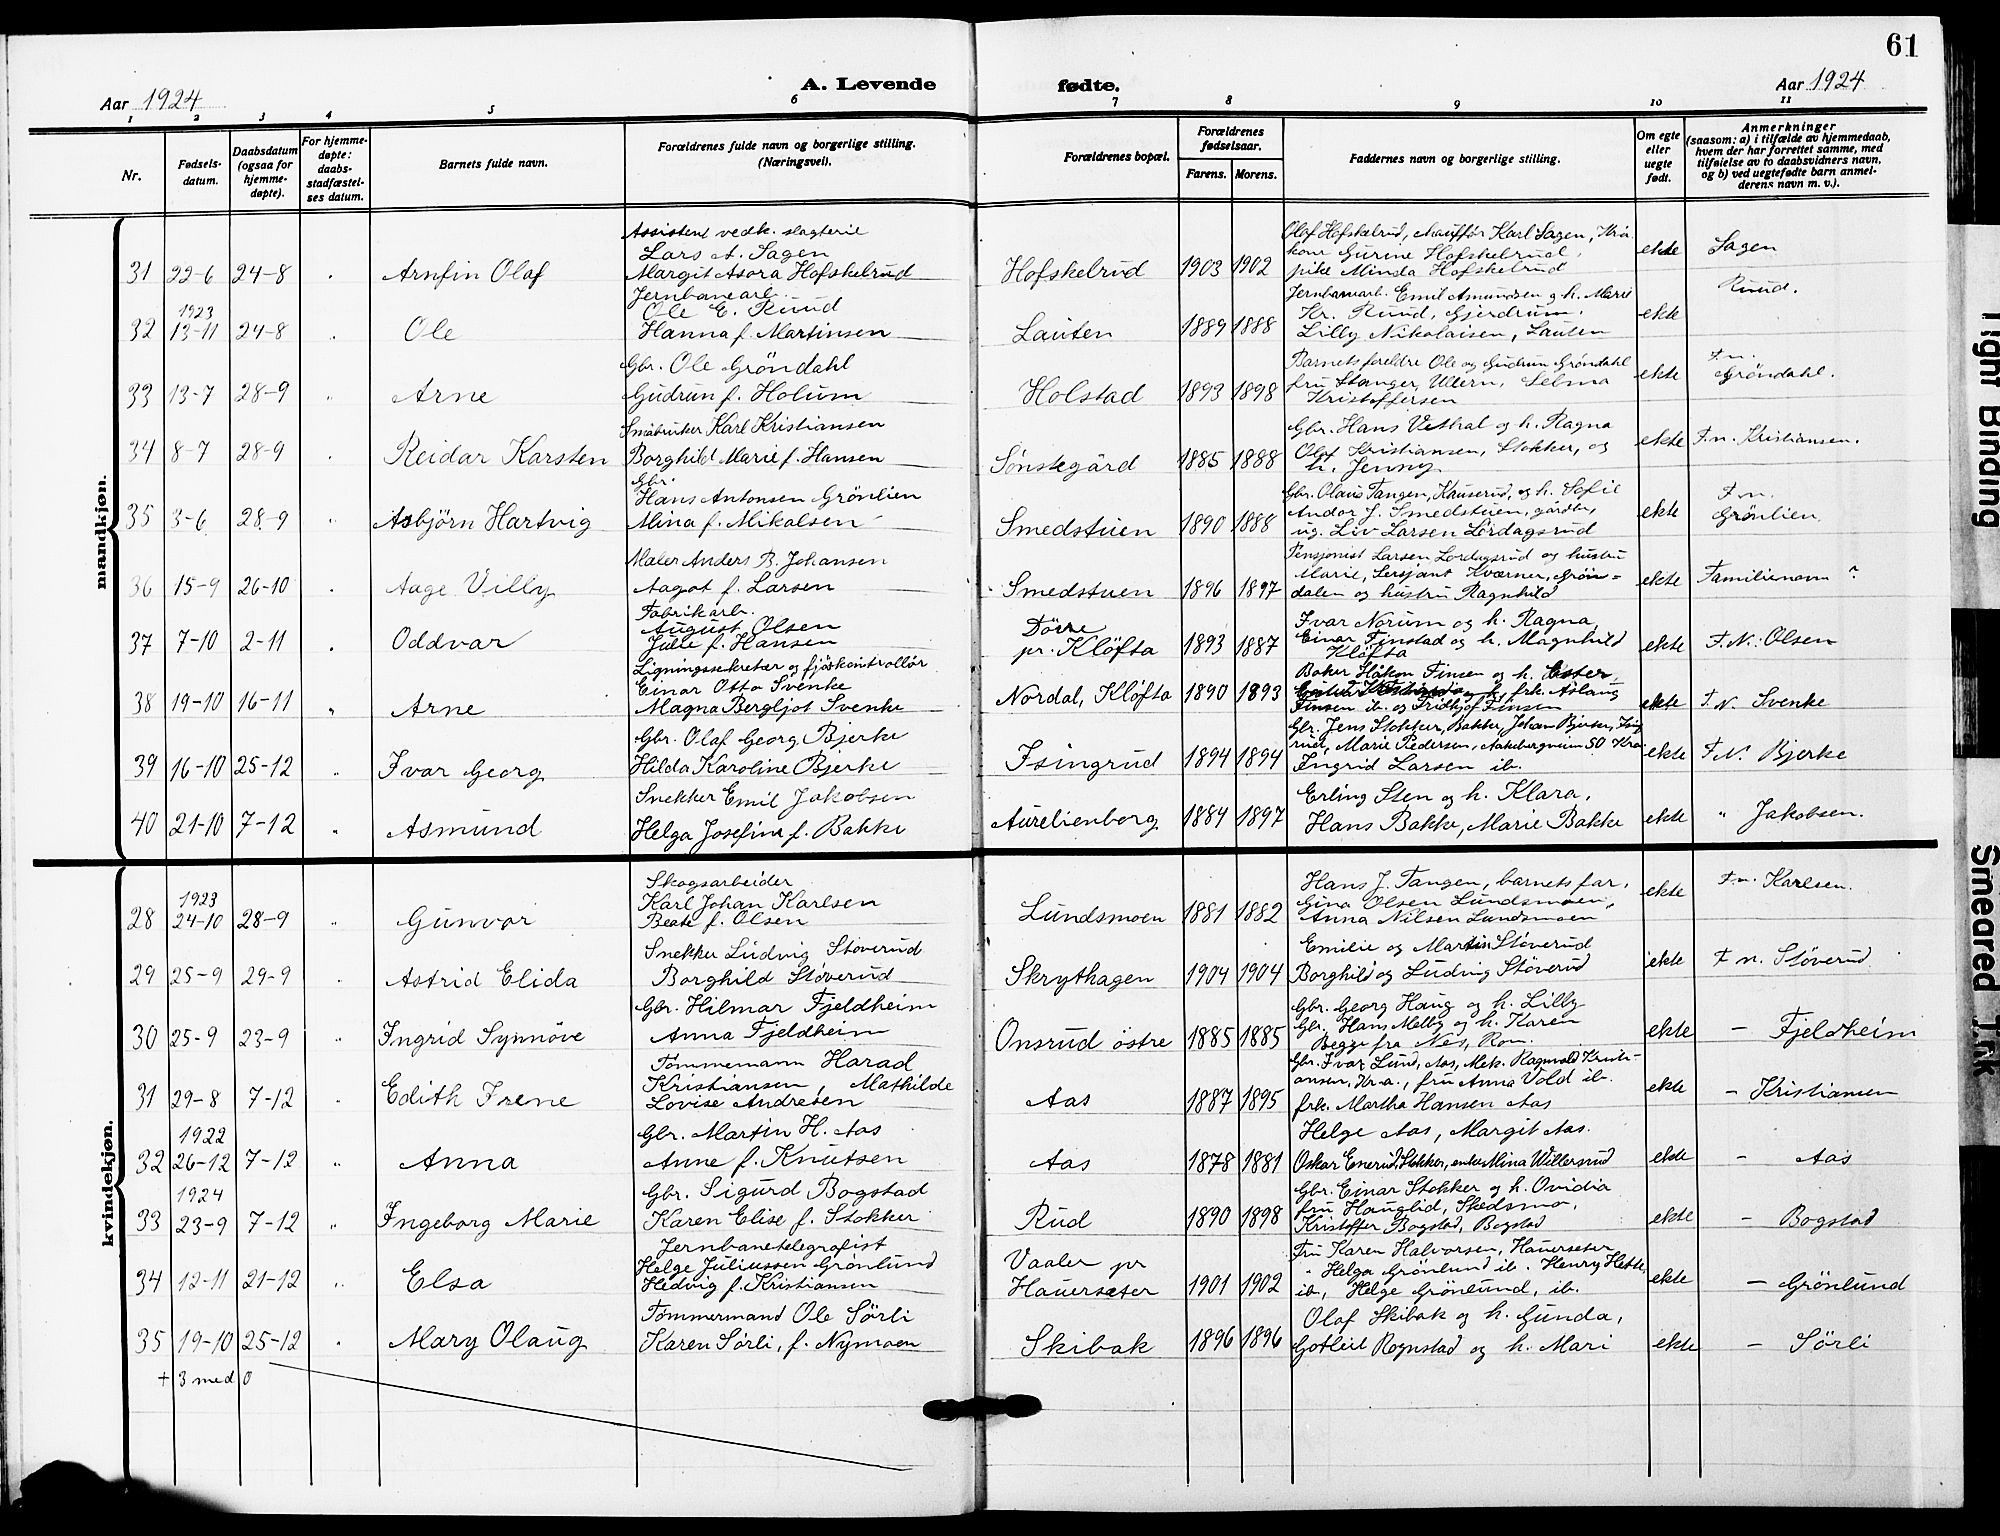 61
Aar 1924
A. Levende
fødte.
Aar 1924
1 2 3 4 5 6 7 8 9 10 11
Nr.
Fødsels-
datum.
Daabsdatum
(ogsaa for
hjemme-
døpte).
For hjemme-
døpte:
daabs-
stadfæstel-
ses datum.
Barnets fulde navn.
Forældrenes fulde navn og borgerlige stilling.
(Næringsvei).
Forældrenes bopæl.
Forældrenes
fødselsaar.
Farens. Morens.
Faddernes navn og borgerlige stilling.
Om egte
eller
uegte
født.
Anmerkninger
(saasom: a) i tilfælde av hjemmedaab,
hvem der har forrettet samme, med
tilføielse av to daabsvidners navn,
og b) ved uegtefødte barn anmel-
derens navn m. v.).
mandkjøn.
31 22-6 24-8 " Arnfin Olaf
Assistent vedk. slagterie
Lars A. Sagen
Margit Asora Hofskelrud
Hofskelrud 1903 1902
Olaf Hofskelrud, Karl Sagen, Kra.
kone Gurine Hofskelrud,
pike Minda Hofskelrud
ekte Sagen
32 1923 13-11 24-8 " Ole
Jernbanearb.
Ole E. Ruud
Hanna f. Martinsen
Lauten 1889 1888
Jernbanearb. Emil Amundsen og h. Marie
Kr. Ruud, Gjerdrum,
Lilly Nikolaisen, Lauten
ekte Ruud.
33 13-7 28-9 " Arne
Gbr. Ole Gröndahl
Gudrun f. Holum
Holstad 1893 1898
Barnets foreldre Ole og Gudrun Gröndahl
fru Stanger, Ullern, Selma
Kristoffersen
ekte F.n. Gröndahl.
34 8-7 28-9 " Reidar Karsten
Småbruker Karl Kristiansen
Borghild Marie f. Hansen
Sønstegård 1885 1888
Gbr. Hans Vethal og h. Ragna
Olaf Kristiansen, Stokker, og
h. Jenny.
ekte F.n. Kristiansen.
35 3-6 28-9 " Asbjörn Hartvig
Gbr.
Hans Antonsen Grönlien
Mina f. Mikalsen
Smedstuen 1890 1888
Gbr. Olaus Tangen, Kauserud, og h. Sofie
Andor J. Smedstuen, gårdbr,
ug. Liv Larsen Lördagsrud
ekte F.n. Grönlien.
36 15-9 26-10 " Aage Villy
Maler Anders B. Johansen
Aagot f. Larsen
Smedstuen 1896 1897
Pensjonist Larsen Lördagsrud og hustru
Marie, Sersjant Kværner, Grön=
dalen og hustru Ragnhild
ekte Familienavn ?
37 7-10 2-11 " Oddvar
Fabrikarb.
August Olsen
Julie f. Hansen
Dörre
pr. Klöfta 1893 1887
Ivar Norum og h. Ragna,
Einar Finstad og h. Magnhild
Klöfta
ekte F.N.: Olsen
38 19-10 16-11 " Arne
Ligningssekretær og fjöskontrollør
Einar Otto Svenke
Magna Bergljot Svenke
Nordal, Kløfta 1890 1893
Baker Håkon Finsen og h. Ester,
og h, frk. Aslaug
Finsen ib. og Fridtjof Finsen
ekte F.N. Svenke
39 16-10 25-12 " Ivar Georg
Gbr. Olaf Georg Bjerke
Hilda Karoline Bjerke
Isingrud 1894 1894
Gbr. Jens Stokker, Bakke, Johan Bjerke, Ising-
rud, Marie Pedersen, Aakebergveien 50 Kra
Ingrid Larsen ib.
ekte F.N. Bjerke
40 21-10 7-12 " Asmund
Snekker Emil Jakobsen
Helga Josefine f. Bakke
Aurelienborg 1884 1897
Erling Sten og h. Klara,
Hans Bakke, Marie Bakke
ekte " Jakobsen.
kvindekjøn.
28 1923 24-10 28-9 " Gunvor
Skogsarbeider
Karl Johan Karlsen
Beate f. Olsen
Lundsmoen 1881 1882
Hans J. Tangen, barnets far,
Gina Olsen Lundsmoen,
Anna Nilsen Lundsmoen
ekte F.n. Karlsen.
29 25-9 29-9 " Astrid Elida
Snekker Ludvig Støverud
Borghild Støverud
Skrythagen 1904 1904
Emilie og Martin Støverud
Borghild og Ludvig Støverud
ekte F n. Støverud
30 25-9 23-9 " Ingrid Synnöve
Gbr. Hilmar Fjeldheim
Anna Fjeldheim
Onsrud östre 1885 1885
Gbr. Georg Haug og h. Lilly
Gbr. Hans Melby og h. Karen
Begge fra Nes, Rom.
ekte — Fjeldheim
31 29-8 7-12 " Edith Irene
Tömmemann Harad
Kristiansen, Mathilde
Lovise Andresen
Aas 1887 1895
Gbr. Ivar Lund, Aas, Mek. Ragnvald Kristi-
ansen, Kr.a., fru Anna Vold ib.
frk. Martha Hansen Aas
ekte — Kristiansen
32 1922 26-12 7-12 " Anna
Gbr. Martin H. Aas
Anne f. Knutsen
Aas 1878 1881
Helge Aas, Margit Aas.
Oskar Enerud, Stokker, enke Mina Willersrud
ekte — Aas
33 1924 23-9 7-12 " Ingeborg Marie
Gbr. Sigurd Bogstad
Karen Elise f. Stokker
Rud 1890 1898
Gbr. Einar Stokker og h. Ovidia
fru Hauglid, Skedsmo,
Kristoffer Bogstad, Bogstad
ekte — Bogstad
34 12-11 21-12 " Elsa
Jernbanetelegrafist
Helge Juliussen Grönlund
Hedvig f. Kristiansen
Vaaler pr
Hauersæter 1901 1902
Fru Karen Halvorsen, Hauerseter
" Helga Grönlund ib. Henry
ib, Helge Grönlund, ib.
ekte — Grönlund
35 19-10 25-12 " Mary Olaug
Tömmermand Ole Sörli
Karen Sörli, f. Nymoen
Skibak 1896 1896
Olaf Skibak og h. Gunda,
Gotleil Rognstad og h. Mari
ekte — Sörli
+ 3 med 0
Tight Binding
Smeared Ink